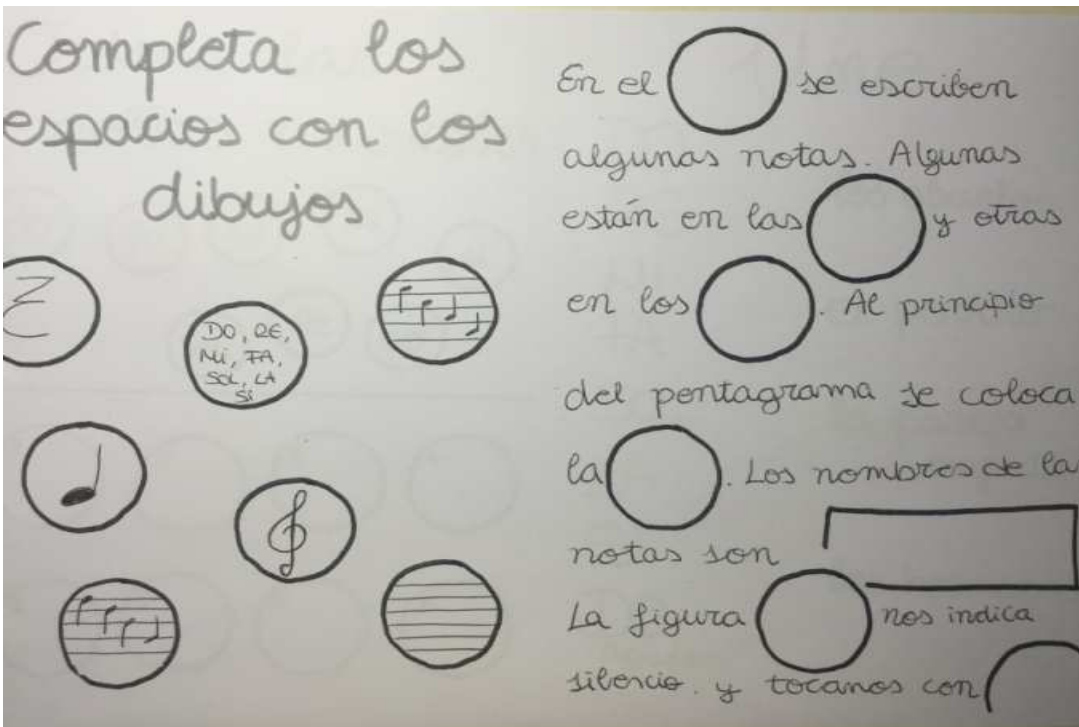 Completa los
espacios con los
dibujos
DO, RE,
Mi, FA,
SOL, LA
Si
En el se escriben
algunas notas. Algunas
están en las y otras
en los . Al principio
del pentagrama se coloca
la . Los nombres de la
notas son
La figura nos indica
silencio. y tocanos con